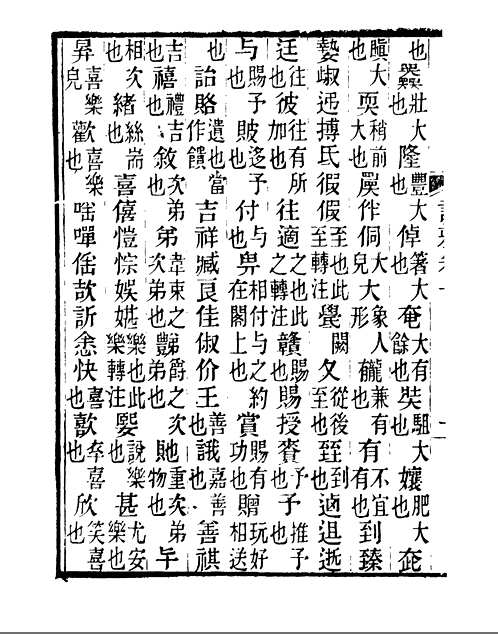 也壯大也隆豐大也倬箸大也奄大有餘也奘駔大也孃肥大也奃
瞋大也耎稍前大也作侗大兒大象人形龓兼有有不宜有也到臻
搏氐徦假至也此至轉注夂從後至也臸到也逝
迋往也彼往有所加也往適之也此之轉注贛賜也賜授賚予也予推予也
与賜予也貱迻予也付与也畀相付与之約在閣上也賞賜有功也贈玩好相送
也詒賂遺也當作饋吉祥臧良佳俶价王善也誐嘉善也善祺
吉也禧禮吉也敘次弟也弟韋束之次弟也豑爵之次弟也貤重次弟物也
相次也緒絲耑也喜僖愷悰娛媅樂也此樂轉注說樂也甚尤安樂也
昇喜樂兒歡喜樂也嗂嘽訢快喜也歖卒喜也欣笑喜也